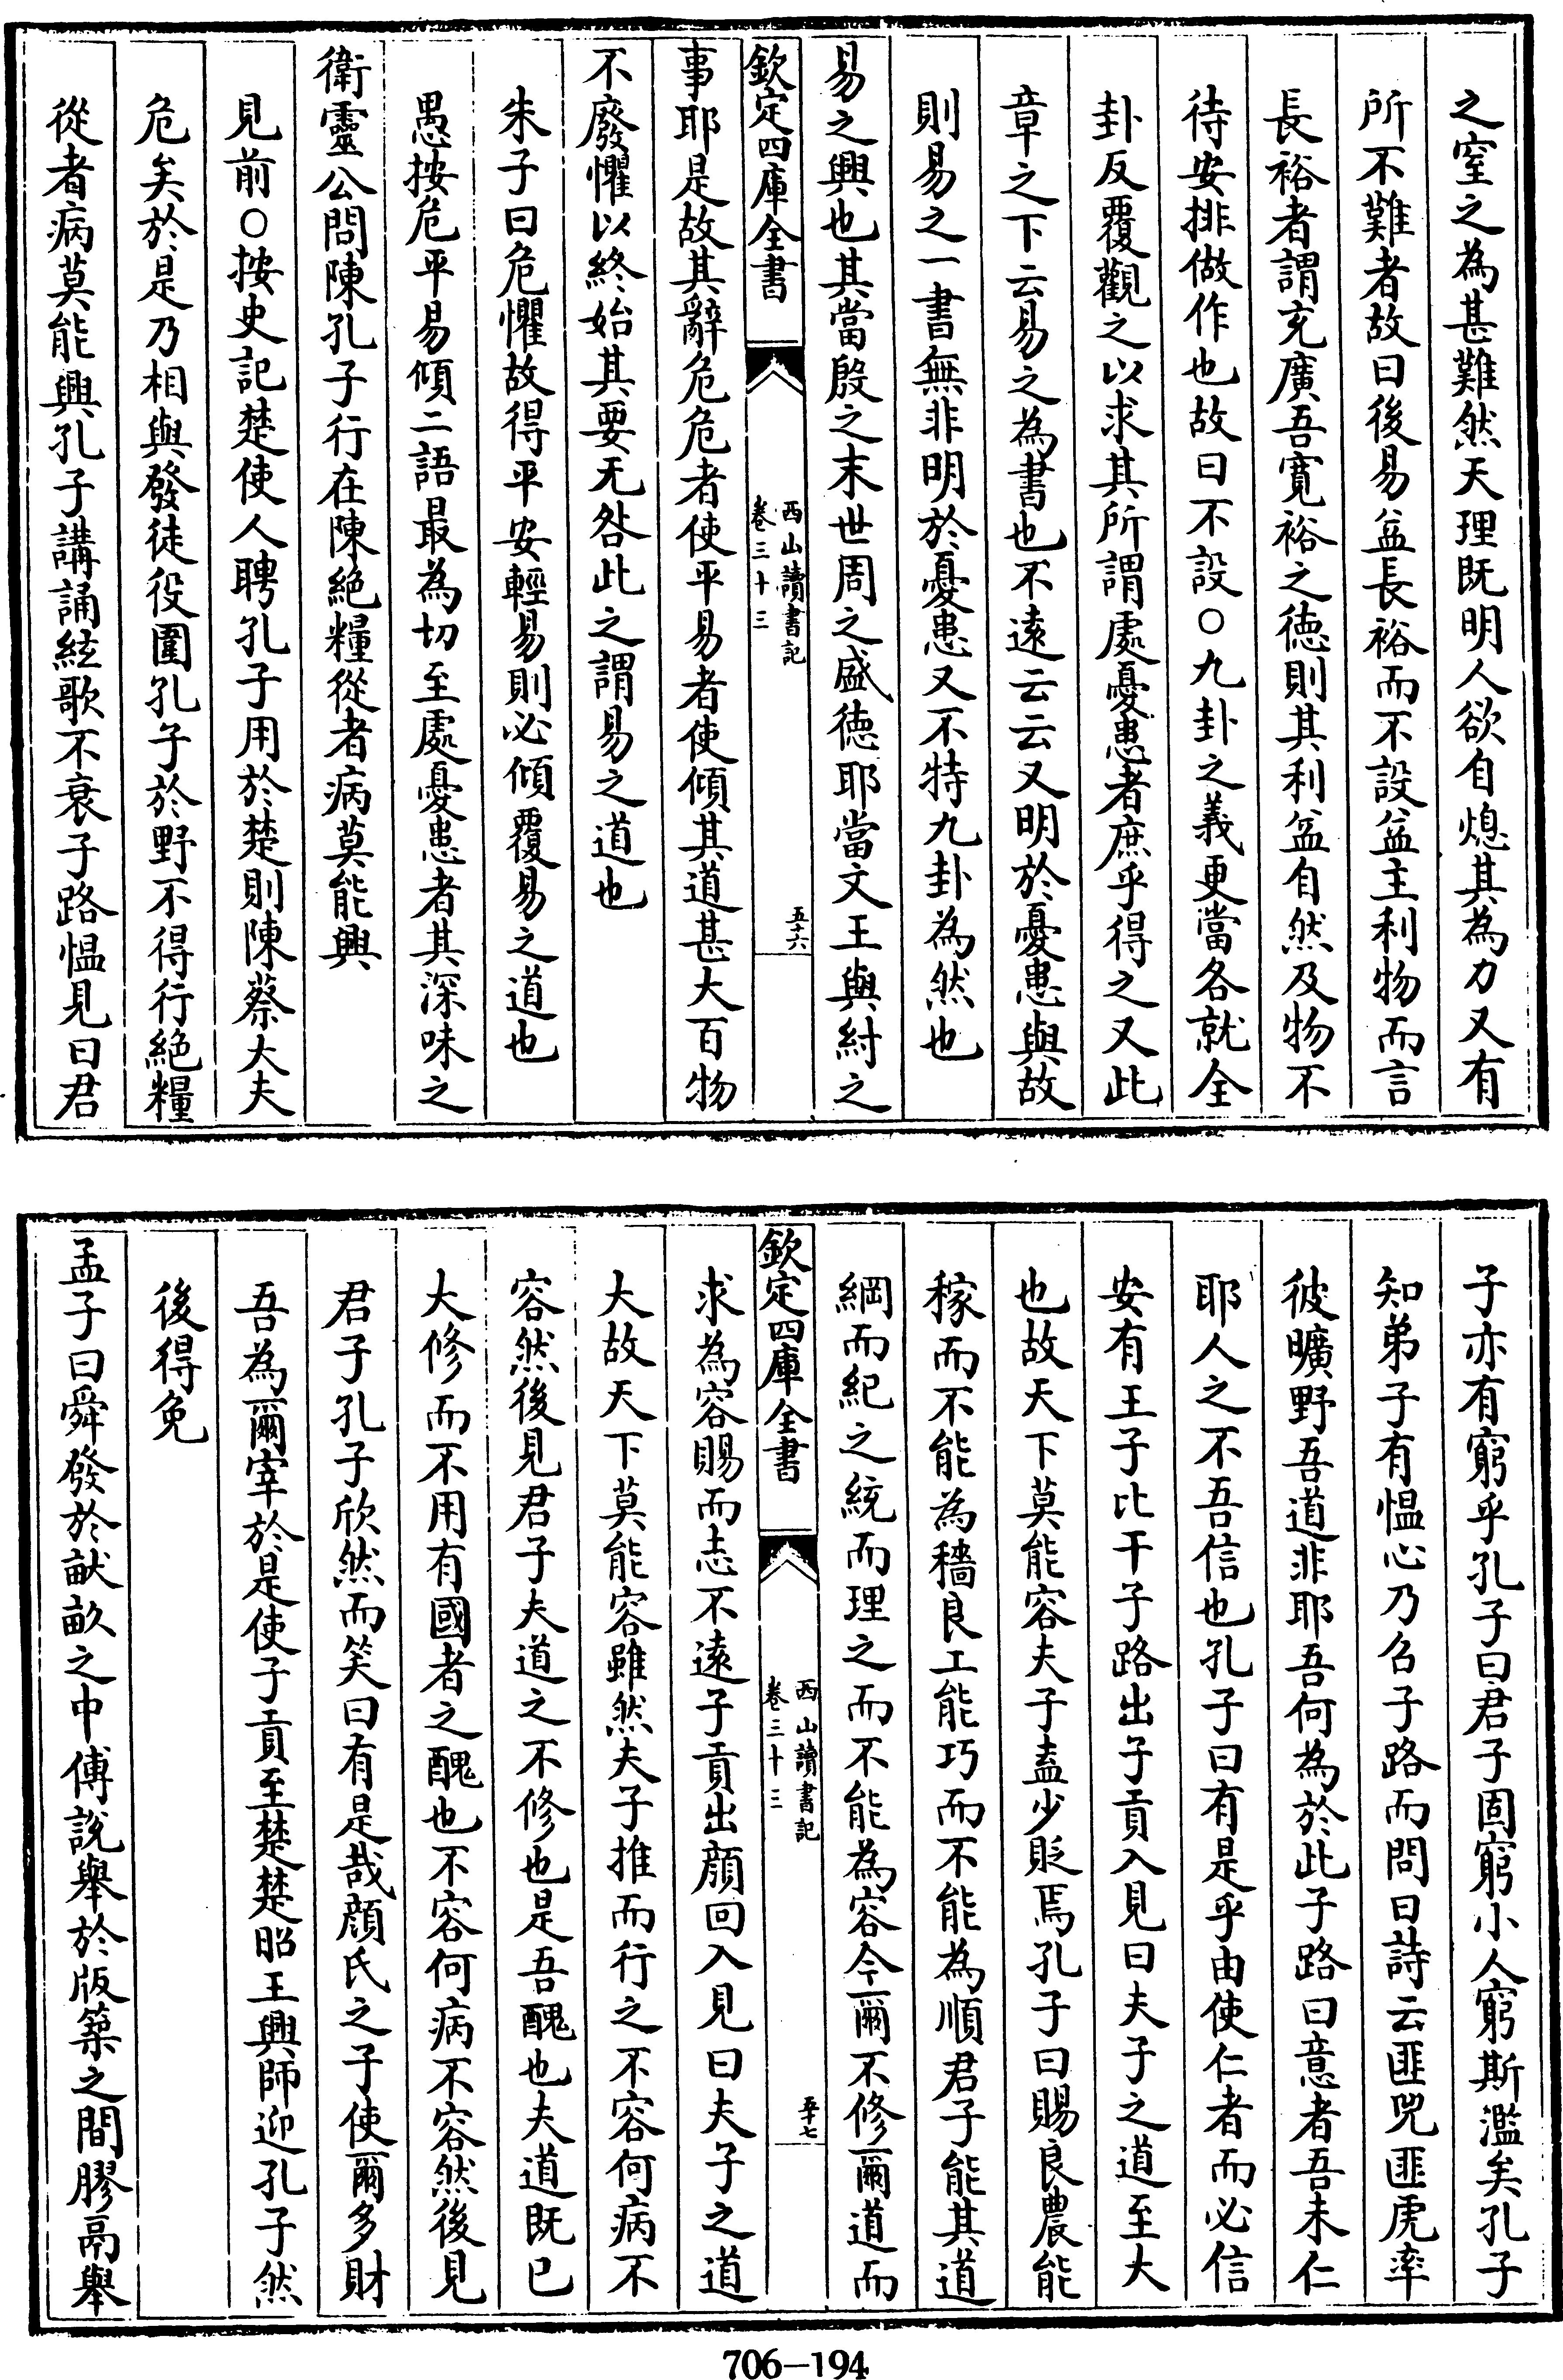 之窒之為甚難然天理既明人欲自熄其為力又有
所不難者故曰後易益長裕而不設益主利物而言
長裕者謂充廣吾寛裕之徳則其利益自然及物不
待安排做作也故曰不設○九卦之義更當各就全
卦反覆觀之以求其所謂處憂患者庶乎得之又此
章之下云易之為書也不逺云云又明於憂患與故
則易之一書無非明於憂患又不特九卦為然也
易之興也其當殷之末世周之盛徳耶當文王與紂之
欽定四庫全書
西山讀書記
卷三十三
五十六
事耶是故其辭危危者使平易者使傾其道甚大百物
不廢懼以終始其要无咎此之謂易之道也
朱子曰危懼故得平安輕易則必傾覆易之道也
愚按危平易傾二語最為切至處憂患者其深味之
衛靈公問陳孔子行在陳絶糧從者病莫能興
見前○按史記楚使人聘孔子用於楚則陳蔡大夫
危矣於是乃相與發徒役圍孔子於野不得行絶糧
從者病莫能興孔子講誦絃歌不衰子路慍見曰君
子亦有窮乎孔子曰君子固窮小人窮斯濫矣孔子
知弟子有慍心乃召子路而問曰詩云匪兕匪虎率
彼曠野吾道非耶吾何為於此子路曰意者吾未仁
耶人之不吾信也孔子曰有是乎由使仁者而必信
安有王子比干子路出子貢入見曰夫子之道至大
也故天下莫能容夫子盍少貶焉孔子曰賜良農能
稼而不能為穡良工能巧而不能為順君子能其道
綱而紀之統而理之而不能為容今爾不修爾道而
欽定四庫全書
西山讀書記
卷三十三
五十七
求為容賜而志不逺子貢出顔回入見曰夫子之道
大故天下莫能容雖然夫子推而行之不容何病不
容然後見君子夫道之不修也是吾醜也夫道既已
大修而不用有國者之醜也不容何病不容然後見
君子孔子欣然而笑曰有是哉顔氏之子使爾多財
吾為爾宰於是使子貢至楚楚昭王興師迎孔子然
後得免
孟子曰舜發於畎畝之中傅說舉於版築之間膠鬲舉
706-194